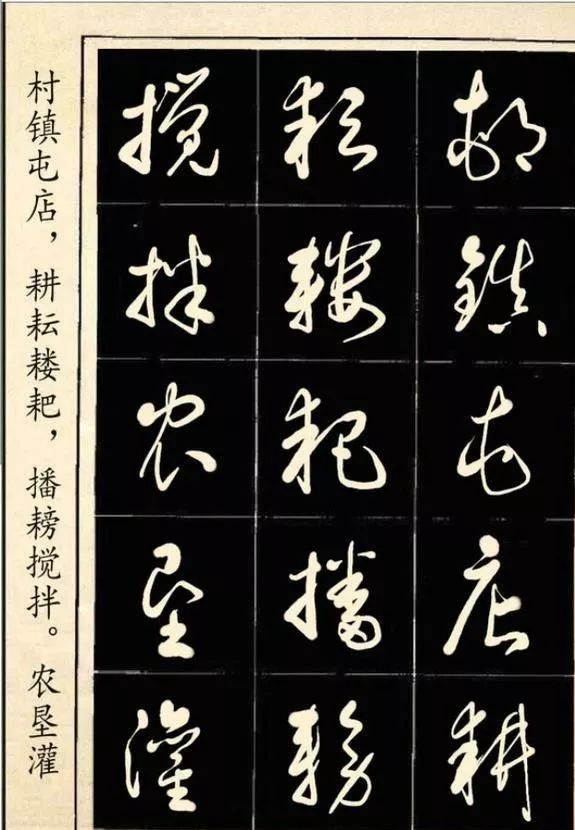 邨鎮屯店耕
耘耧耙播耪
搅拌农垦灌
村镇屯店，耕耘耧耙，播耪搅拌。农垦灌